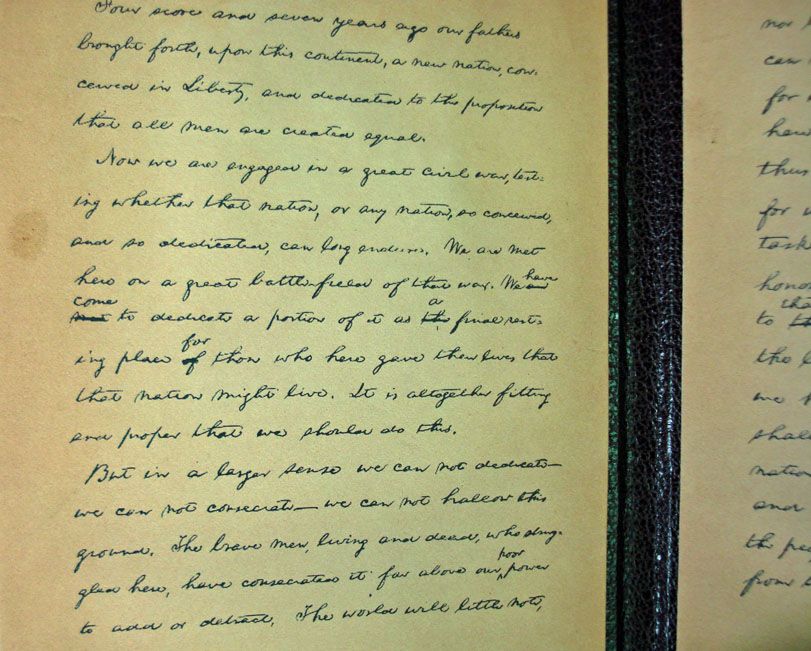 Four score and seven years ago our fathers
brought forth, upon this continent, a new nation, con-
ceived in Liberty, and dedicated to the proposition
that all men are created equal.
Now we are engaged in a great civil war, test-
ing whether that nation, or any nation, so conceived,
and so dedicated, can long endure. We are met
here on a great battle-field of that war. We are have
come
met to dedicate a portion of it as the a final rest-
for
ing place of those who here gave their lives that
that nation might live. It is altogether fitting
and proper that we should do this.
But in a larger sense we can not dedicate—
we can not consecrate—we can not hallow this
ground. The brave men, living and dead, who strug-
poor
gled here, have consecrated it far above our power
to add or detract. The world will little note,
nor
can
for
have
thus
for
task
honor
to the
the
we
shall
nation
and
the peo
from